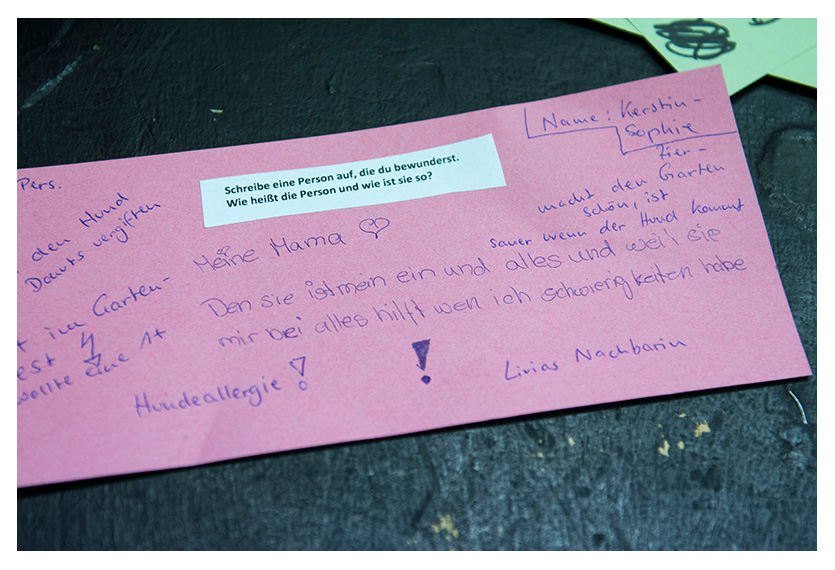 Name: Kerstin-
Sophie
Pers.
Schreibe eine Person auf, die du bewunderst.
Wie heißt die Person und wie ist sie so?
Zier-
macht den Garten
schön, ist
sauer wenn der Hund kommt
den Hund
Donuts vergiften
Meine Mama
Den sie ist mein ein und alles und weil sie
mir bei alles hilft wen ich schwierigkeiten habe
im Garten-
wollte eine 1+
Hundeallergie !
!
Livias Nachbarin